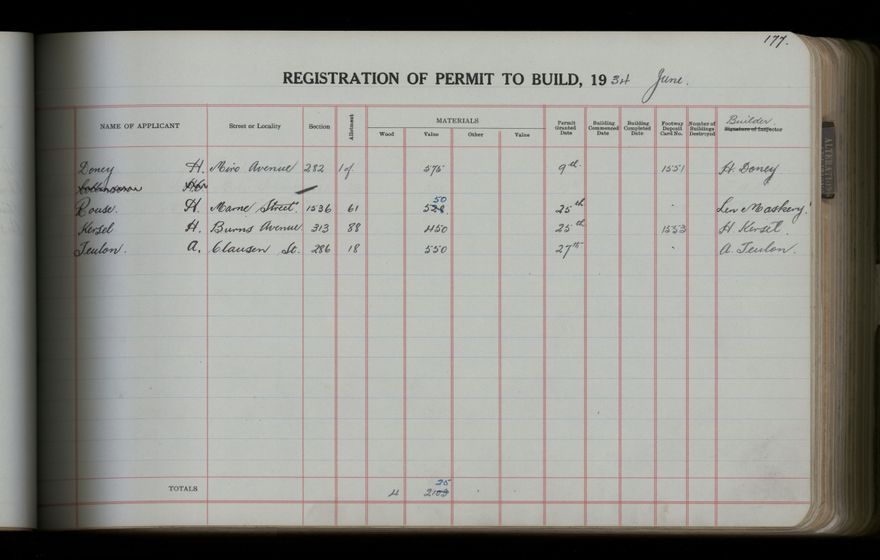 177.
REGISTRATION OF PERMIT TO BUILD, 1934 June.
NAME OF APPLICANT Street or Locality Section Allotment MATERIALS Wood Value Other Value Permit Granted Date Building Commenced Date Building Completed Date Footway Deposit Card No. Number of Buildings Destroyed Builder. Signature of Inspector
Doney H. Miro Avenue 282 1 of 575 9th 1551 H. Doney
Rouse. H. Marne Street 1536 61 50 25th Len Maskery.
Kersel H. Burns Avenue 313 88 450 25th 1553 H Kersel.
Teulon. A. Clausen St. 286 18 550 27th A. Teulon.
TOTALS 4 25 2103